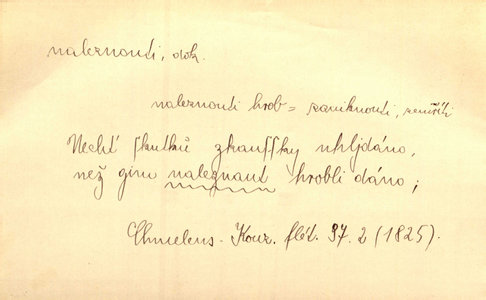 naleznouti, dok.
naleznouti hrob = zaniknouti, zemříti
Nechť skutků zkaussky uhljdáno,
než gim naleznaut hrobli dáno;
Chmelens. Kouz. flét. 37. 2 (1825).